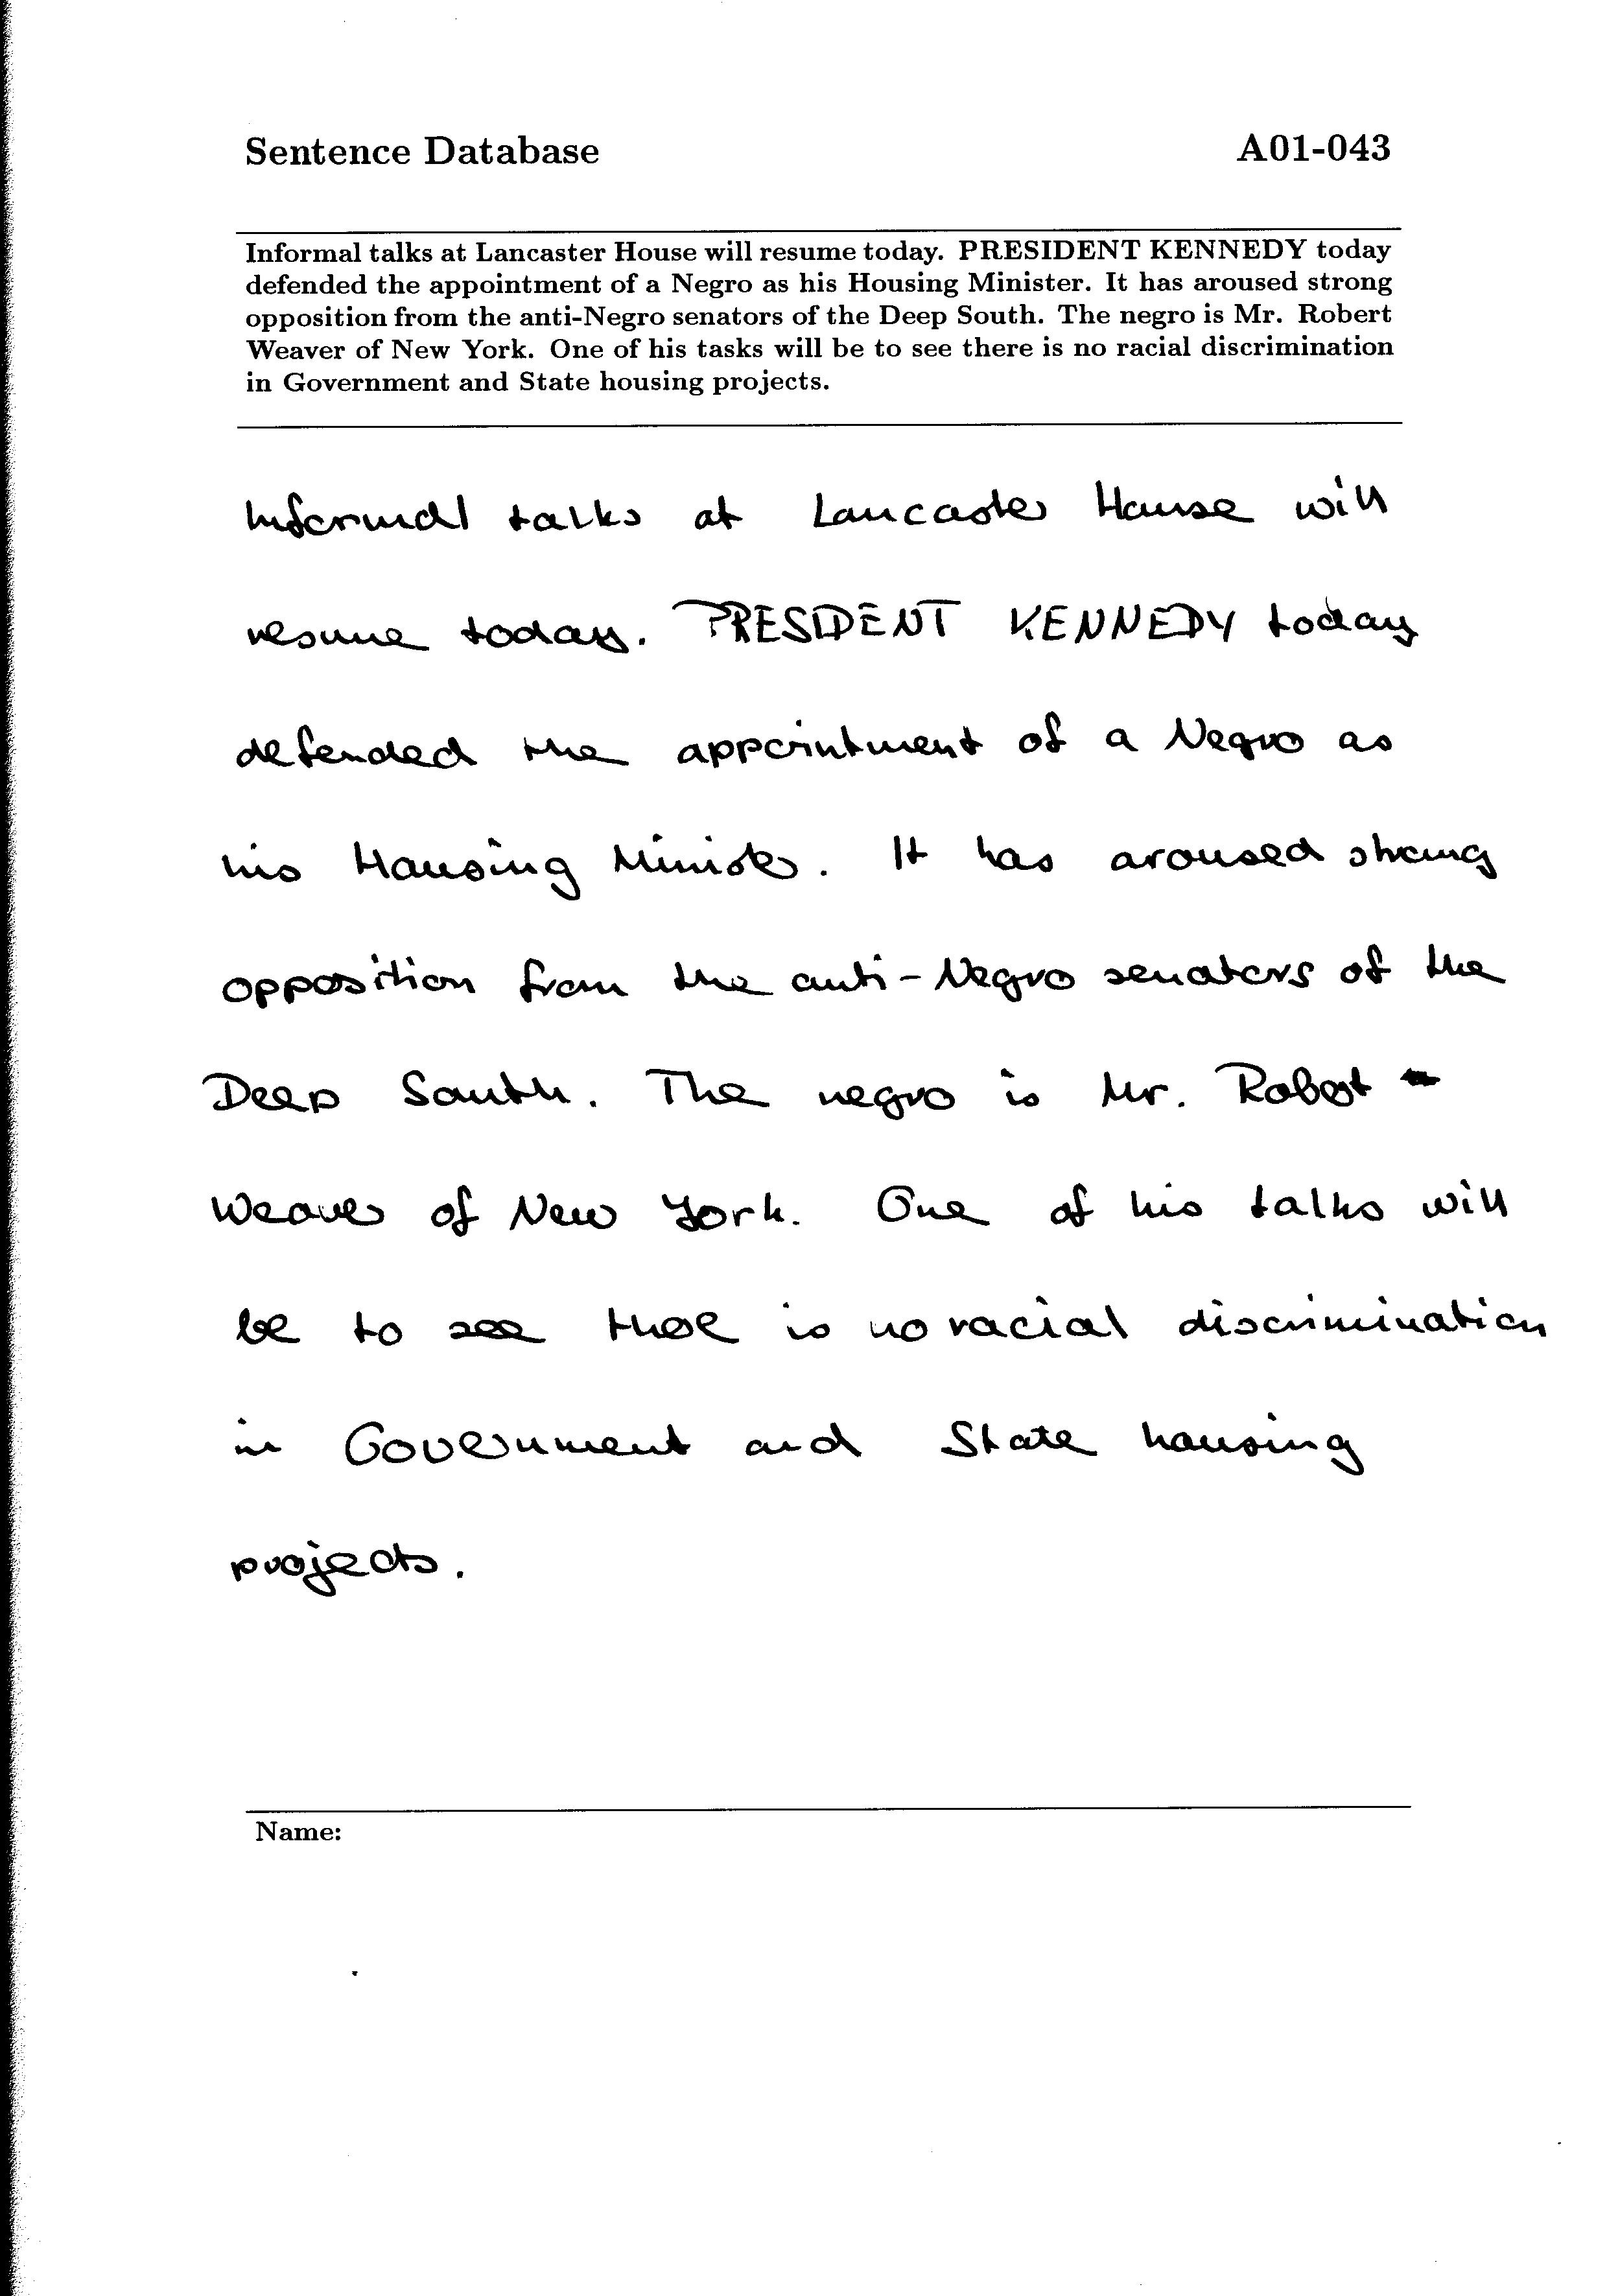 Sentence Database A01-043
Informal talks at Lancaster House will resume today. PRESIDENT KENNEDY today
defended the appointment of a Negro as his Housing Minister. It has aroused strong
opposition from the anti-Negro senators of the Deep South. The negro is Mr. Robert
Weaver of New York. One of his tasks will be to see there is no racial discrimination
in Government and State housing projects.
Informal talks at Lancaster House will
resume today. PRESIDENT KENNEDY today
defended the appointment of a Negro as
his Housing Minister. It has aroused strong
opposition from the anti-Negro senators of the
Deep South. The negro is Mr. Robert
Weaver of New York. One of his talks will
be to see there is no racial discrimination
in Government and State housing
projects.
Name: